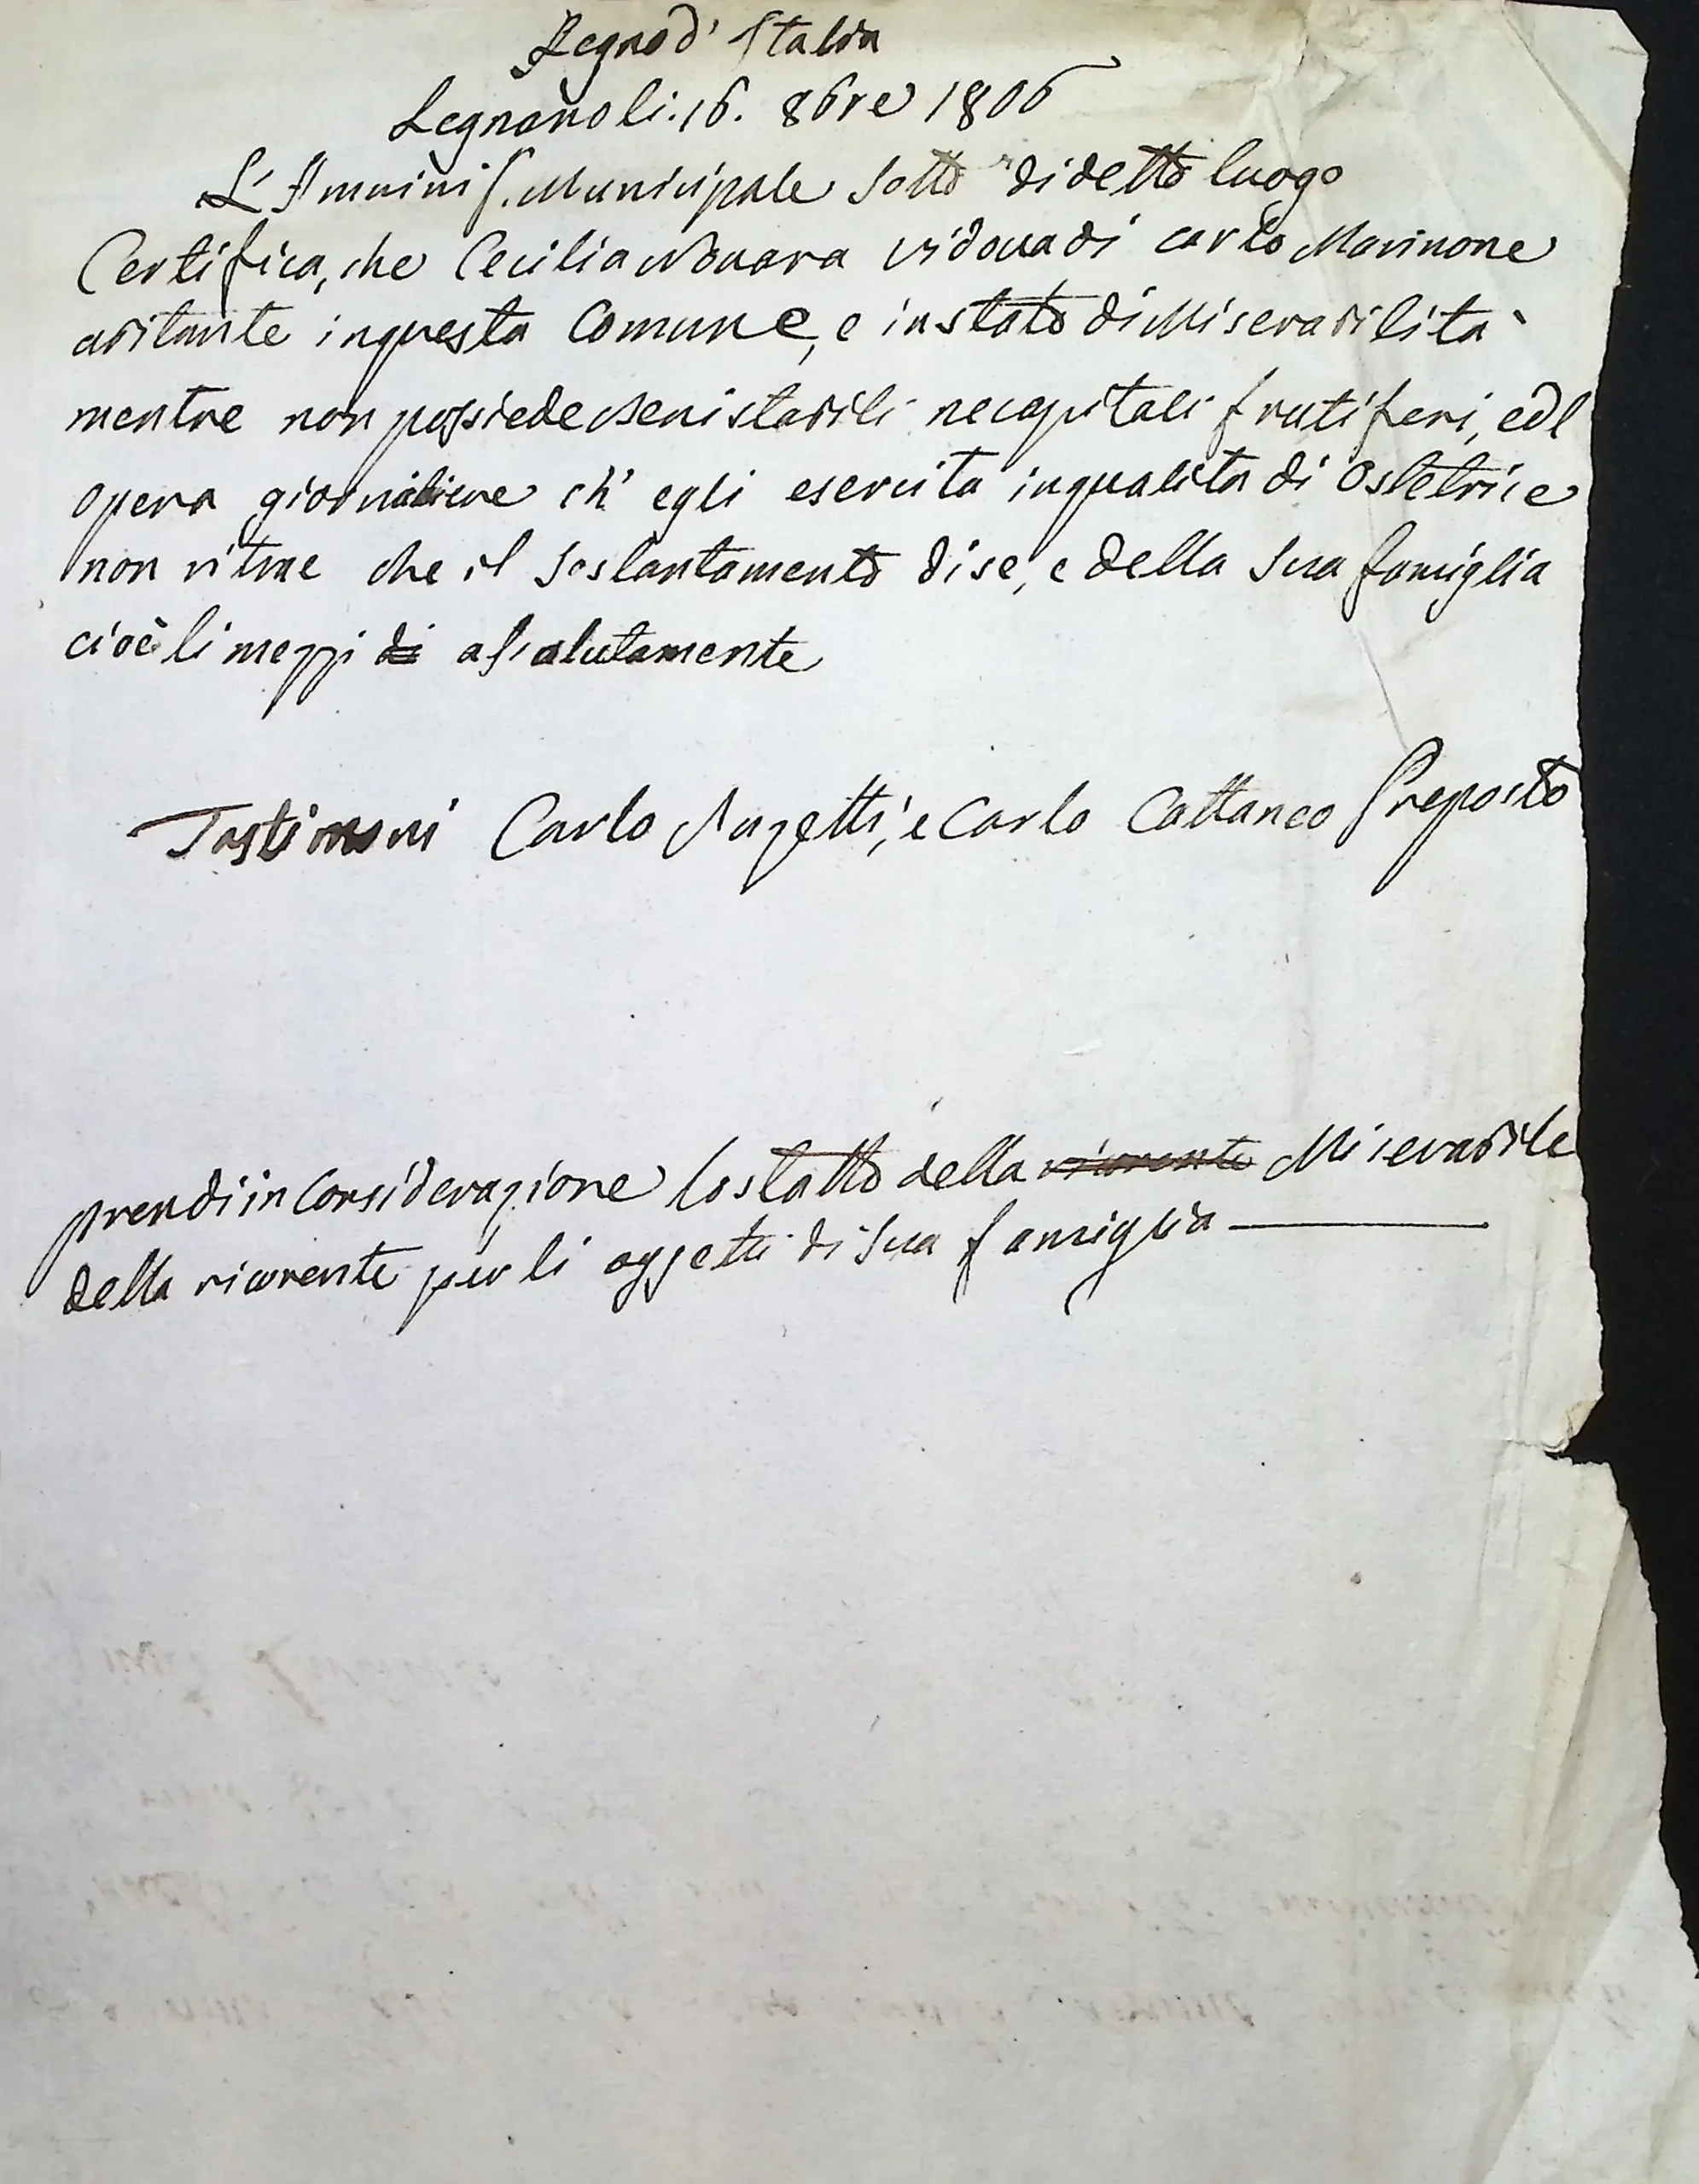 Regno d' Italia
Legnano li. 16. 8bre 1806
L' Amminis. Municipale sotto di detto luogo
Certifica, che Cecilia Novara vidova di carlo Marinone
abitante in questa Comune, e in stato di Miserabilità
mentre non possiede beni stabili ne capitali frutiferi, ed l
opera giornaliere ch' egli esercita in qualità di Ostetrice
non ritrae che il sostantamento di se, e della sua famiglia
cioè li mezzi di assolutamente
Testimoni Carlo Muzetti, e Carlo Cattaneo Preposto
prendi in Considerazione lo statto della ricorente Miserabile
della ricorente per li oggetti di sua famiglia